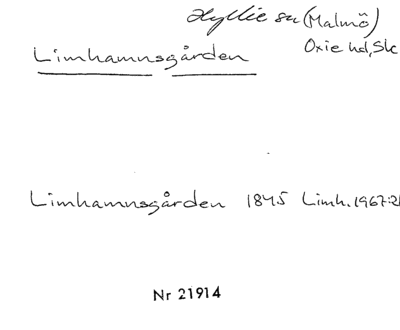 Hyllie sn (Malmö)
Oxie hd, Sk
Limhamnsgården
Limhamnsgården 1845 Limh. 1967:21
Nr 21914